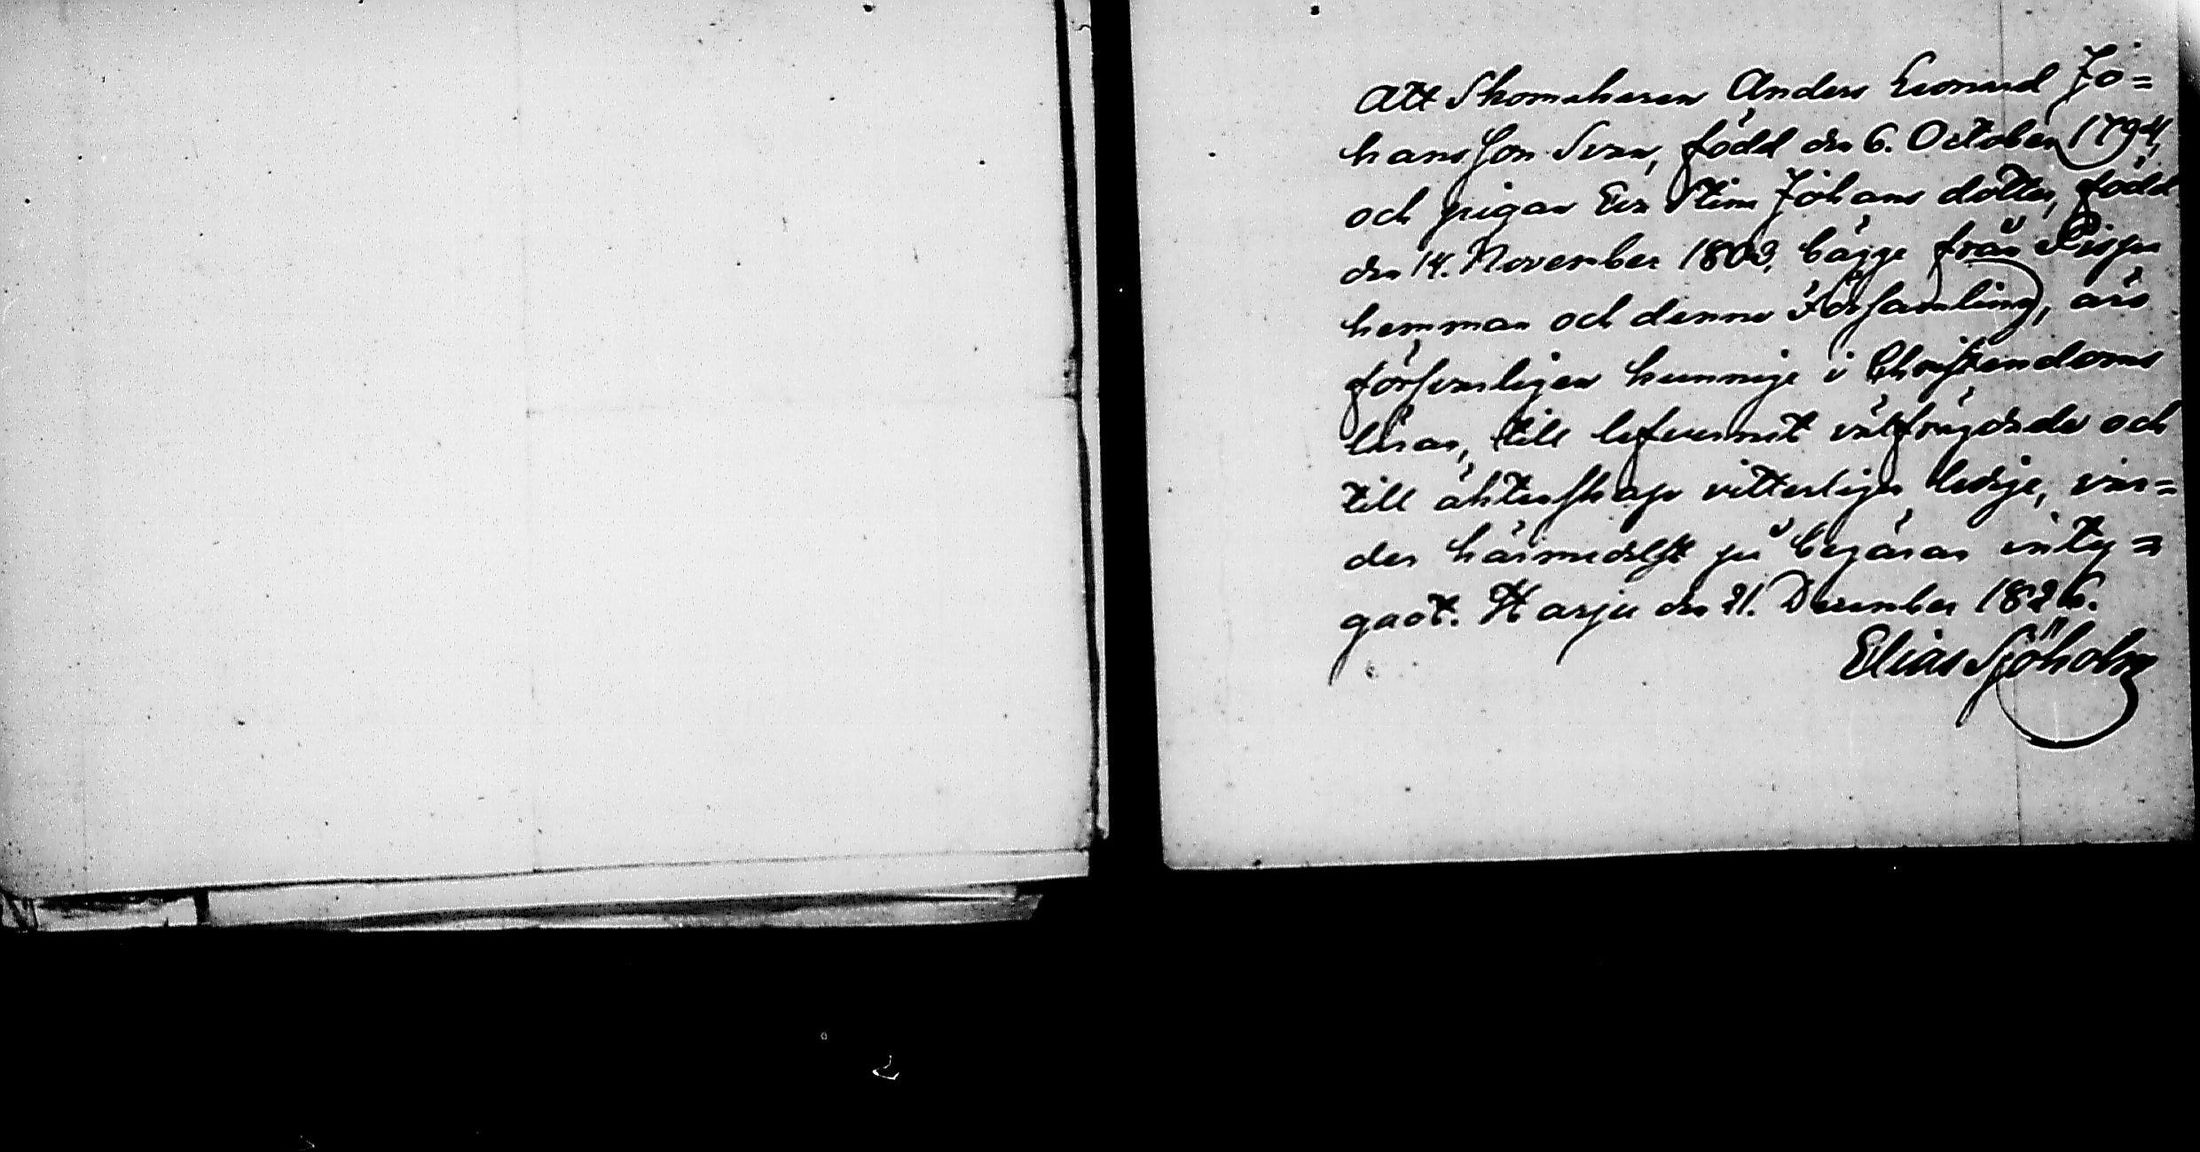 Att Skomakaren Anders Leonard Jo=
hansson Svan, född den 6. October 1794,
och pigan Eva Stina Johans dotter, född
den 14. November 1803, bägge från Pispa
hemman och denna Församling, äro
försvarligen kunnige i Christendoms
läran, till lefvernet välfrägdade och
till äktenskap vitterligen ledige, var=
der härmedelst på begäran inty=
gadt. Harju den 21. December 1826.
Elias Sjöholm